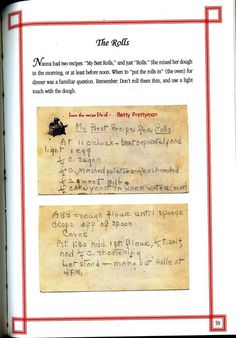 The Rolls
Nanna had two recipes: "My Best Rolls," and just "Rolls." She mixed her dough
in the morning, or at least before noon. When to "put the rolls in" (the oven) for
dinner was a familiar question. Remember: Don't roll them thin, and use a light
touch with the dough.
From the recipe file of - Betty Prettyman
My Best Recipe for Rolls
At 11 O'clock - beat separately and
light 1 egg
C. Sugar
C. mashed potatoes - fresh cooked
C. sweet milk
cake yeast in warm water
Add enough flour until sponge
drops off of spoon
Cover
At 1:30 add 1 pt flour, salt,
and C. shortening
Let stand - make out Rolls at
4 P.M.
59